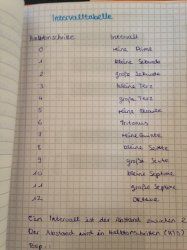 Intervalltabelle
Halbtonschritte Intervall
0 reine Prime
1 kleine Sekunde
2 große Sekunde
3 kleine Terz
4 große Terz
5 reine Quarte
6 Tritonus
7 reine Quinte
8 kleine Sexte
9 große Sexte
10 kleine Septime
11 große Septime
12 Oktave
Ein Intervall ist der Abstand zwischen 2
Der Abstand wird in Halbtonschritten (HTS)